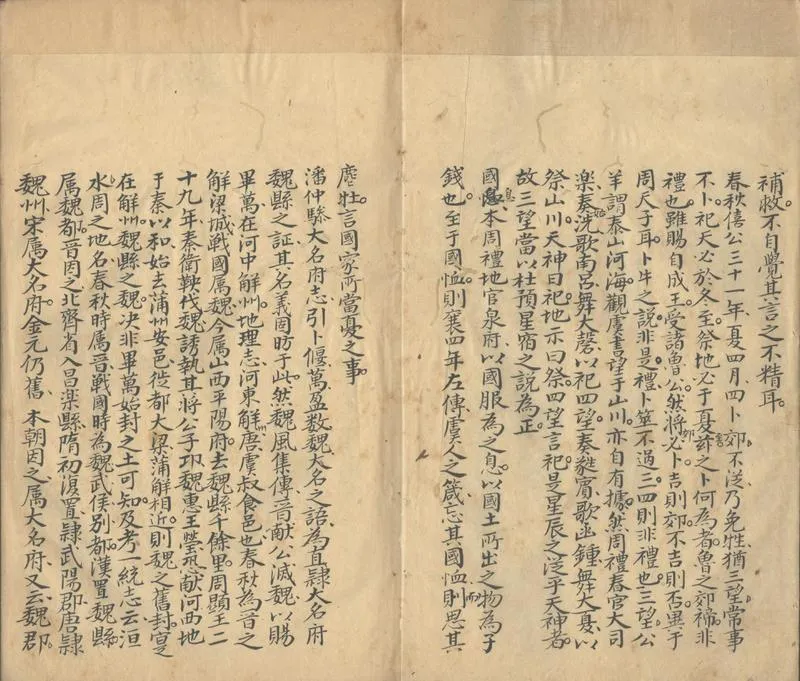 補敘不自覺其言之不精耳
春秋僖公三十一年夏四月四卜郊不從乃免牲猶三望常事
不卜祀天必於冬至祭地必于夏 之卜何為者魯之郊禘非
禮也雖賜自成王受諸魯公然將必卜吉則郊不吉則否異于
周天子耳卜牛之說非是禮卜筮不過三四則非禮也三望公
羊謂泰山河海觀虞書望于山川亦自有據然周禮春官大司
楽奏洗歌南呂舞大磬以祀四望奏蕤賓歌函鍾舞大夏以
祭山川天神曰祀地示曰祭四望言祀是星辰之泛乎天神者
故三望當以杜預星宿之說為正
國息本周禮地官泉府以國服為之息以國土所出之物為子
錢也至于國恤則襄四年左傳虞人之箴忘其國恤而思其
麀牡言國家所當憂之事
潘仲驂大名府志引卜偃萬盈数魏大名之語為直隸大名府
魏縣之証其名義固昉于此然魏風集傳晉献公滅魏以賜
畢萬在河中解州地理志河東解唐虞叔食邑也春秋為晉之
解梁城戰國属魏今属山西平陽府去魏縣千餘里周顯王二
十九年秦衛鞅伐魏誘執其將公子卬魏惠王瑩恐献河西地
于秦以和始去蒲州安邑徙都大梁蒲解相近則魏之舊封寔
在解州魏縣之魏决非畢萬始封之土可知及考一統志云洹
水周之地名春秋時属晉戰國時為魏武侯別都漢置魏縣
属魏郡晉因之北齊省入昌楽縣隋初復置隸武陽郡唐隸
魏州宋属大名府金元仍舊 本朝因之属大名府又云魏郡